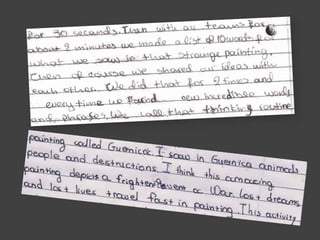 for 30 seconds. Then with our teams for
about 2 minutes we made a list of 10 words for
what we saw in that strange painting.
Then of course we shared our ideas with
each other. We did that for 2 times and
every time we found new words
and phrases. We call that thinking routine
painting called Guernica. I saw in Guernica animals
people and destructions. I think this amazing
painting depicts a frightening event a War. lost dreams
and lost lives travel fast in painting. This activity